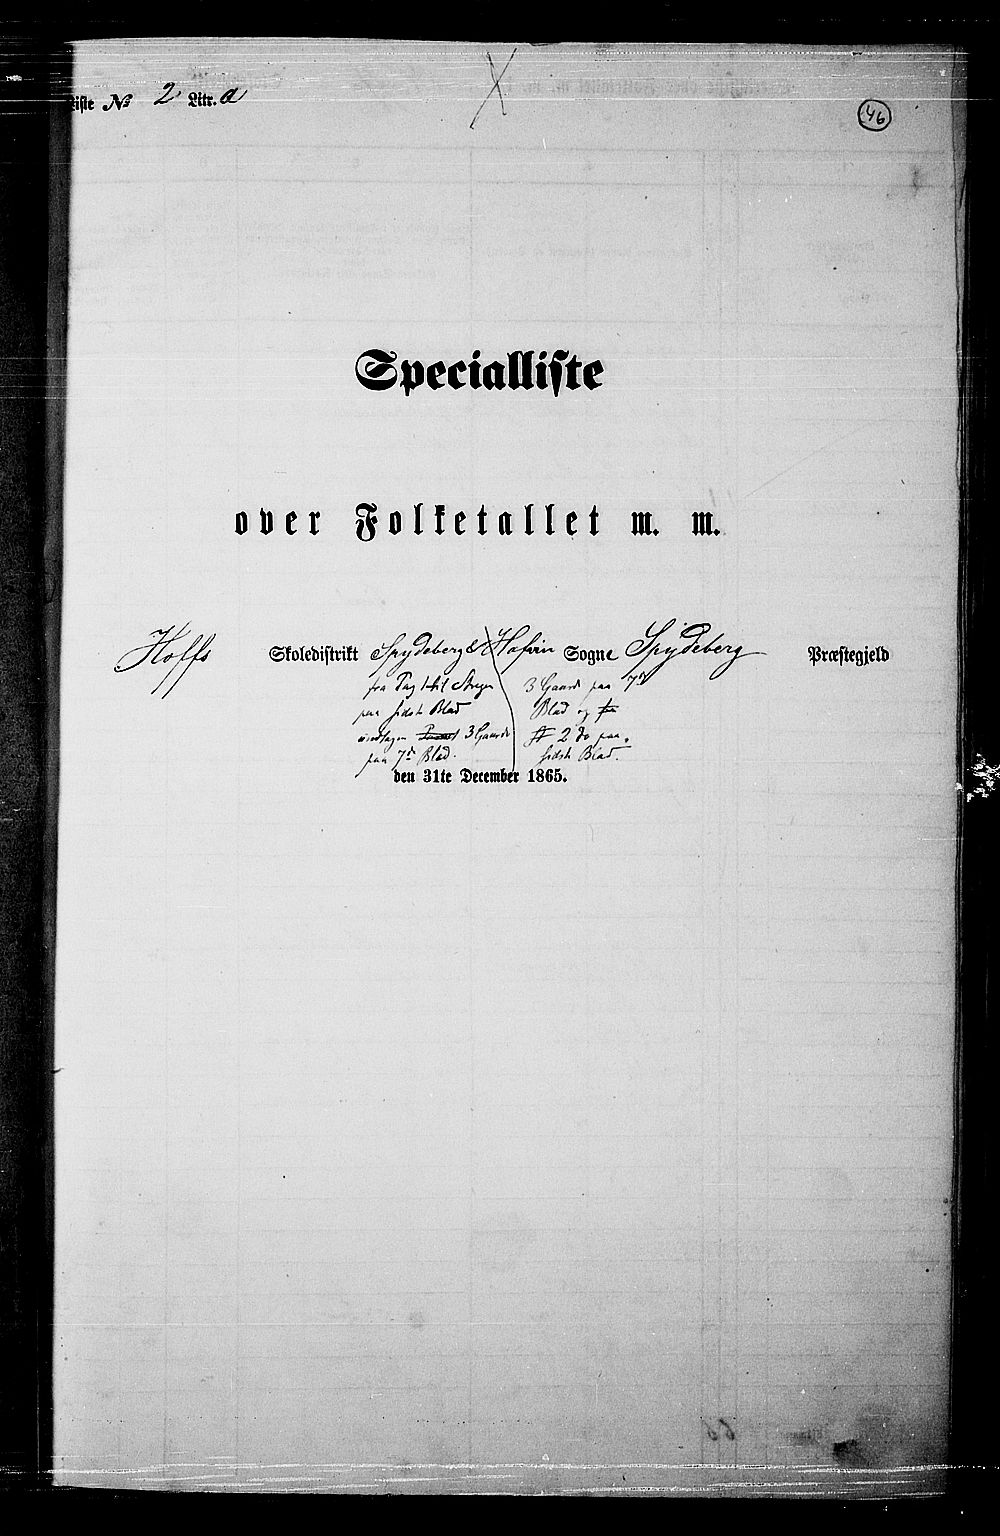 Liste No 2 Litr. a
46
Specialliste
over Folketallet m. m.
Hoffs Skoledistrikt Spydeberg & Hofvin Sogne Spydeberg Præstegjeld
fra Pag 1 til Stregen
paa sidste Blad
undtagen 3 Gaarde
paa 7de Blad.
3 Gaarde paa 7de
Blad og
2 do paa
sidste Blad.
den 31te December 1865.